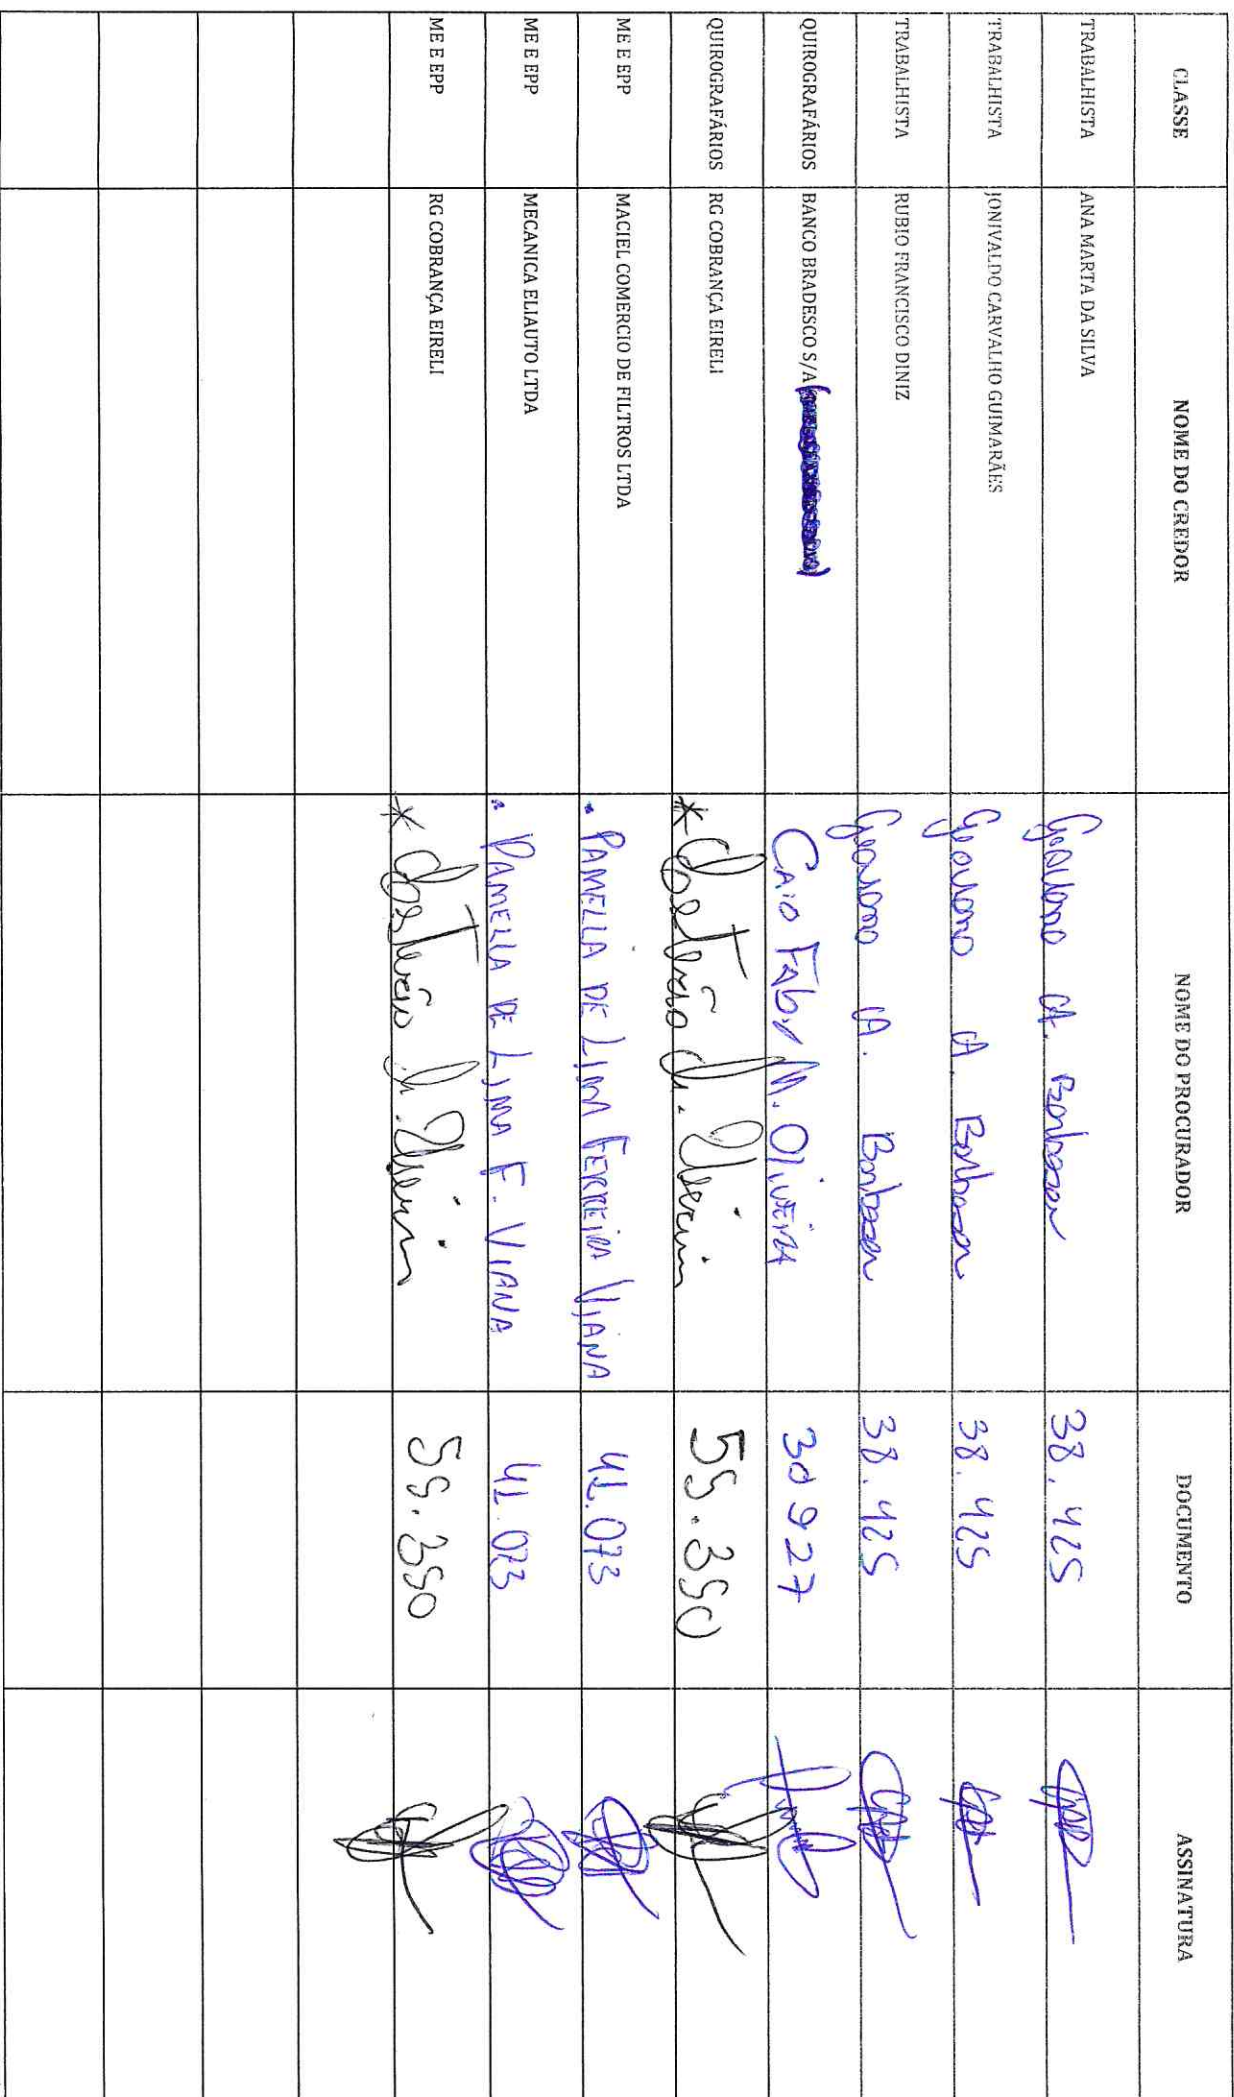 CLASSE NOME DO CREDOR NOME DO PROCURADOR DOCUMENTO ASSINATURA
TRABALHISTA ANA MARTA DA SILVA A. Barbosa 38.425
TRABALHISTA JONIVALDO CARVALHO GUIMARÃES A. Barbosa 38.425
TRABALHISTA RUBIO FRANCISCO DINIZ A. Barbosa 38.425
QUIROGRAFÁRIOS BANCO BRADESCO S/A CAIO FABIO M. OLIVEIRA 30927
QUIROGRAFÁRIOS RG COBRANÇA EIRELI
ME E EPP MACIEL COMERCIO DE FILTROS LTDA • PAMELLA DE LIMA FERREIRA VIANA 41.073
ME E EPP MECANICA ELIAUTO LTDA • PAMELLA DE LIMA F. VIANA 41.073
ME E EPP RG COBRANÇA EIRELI